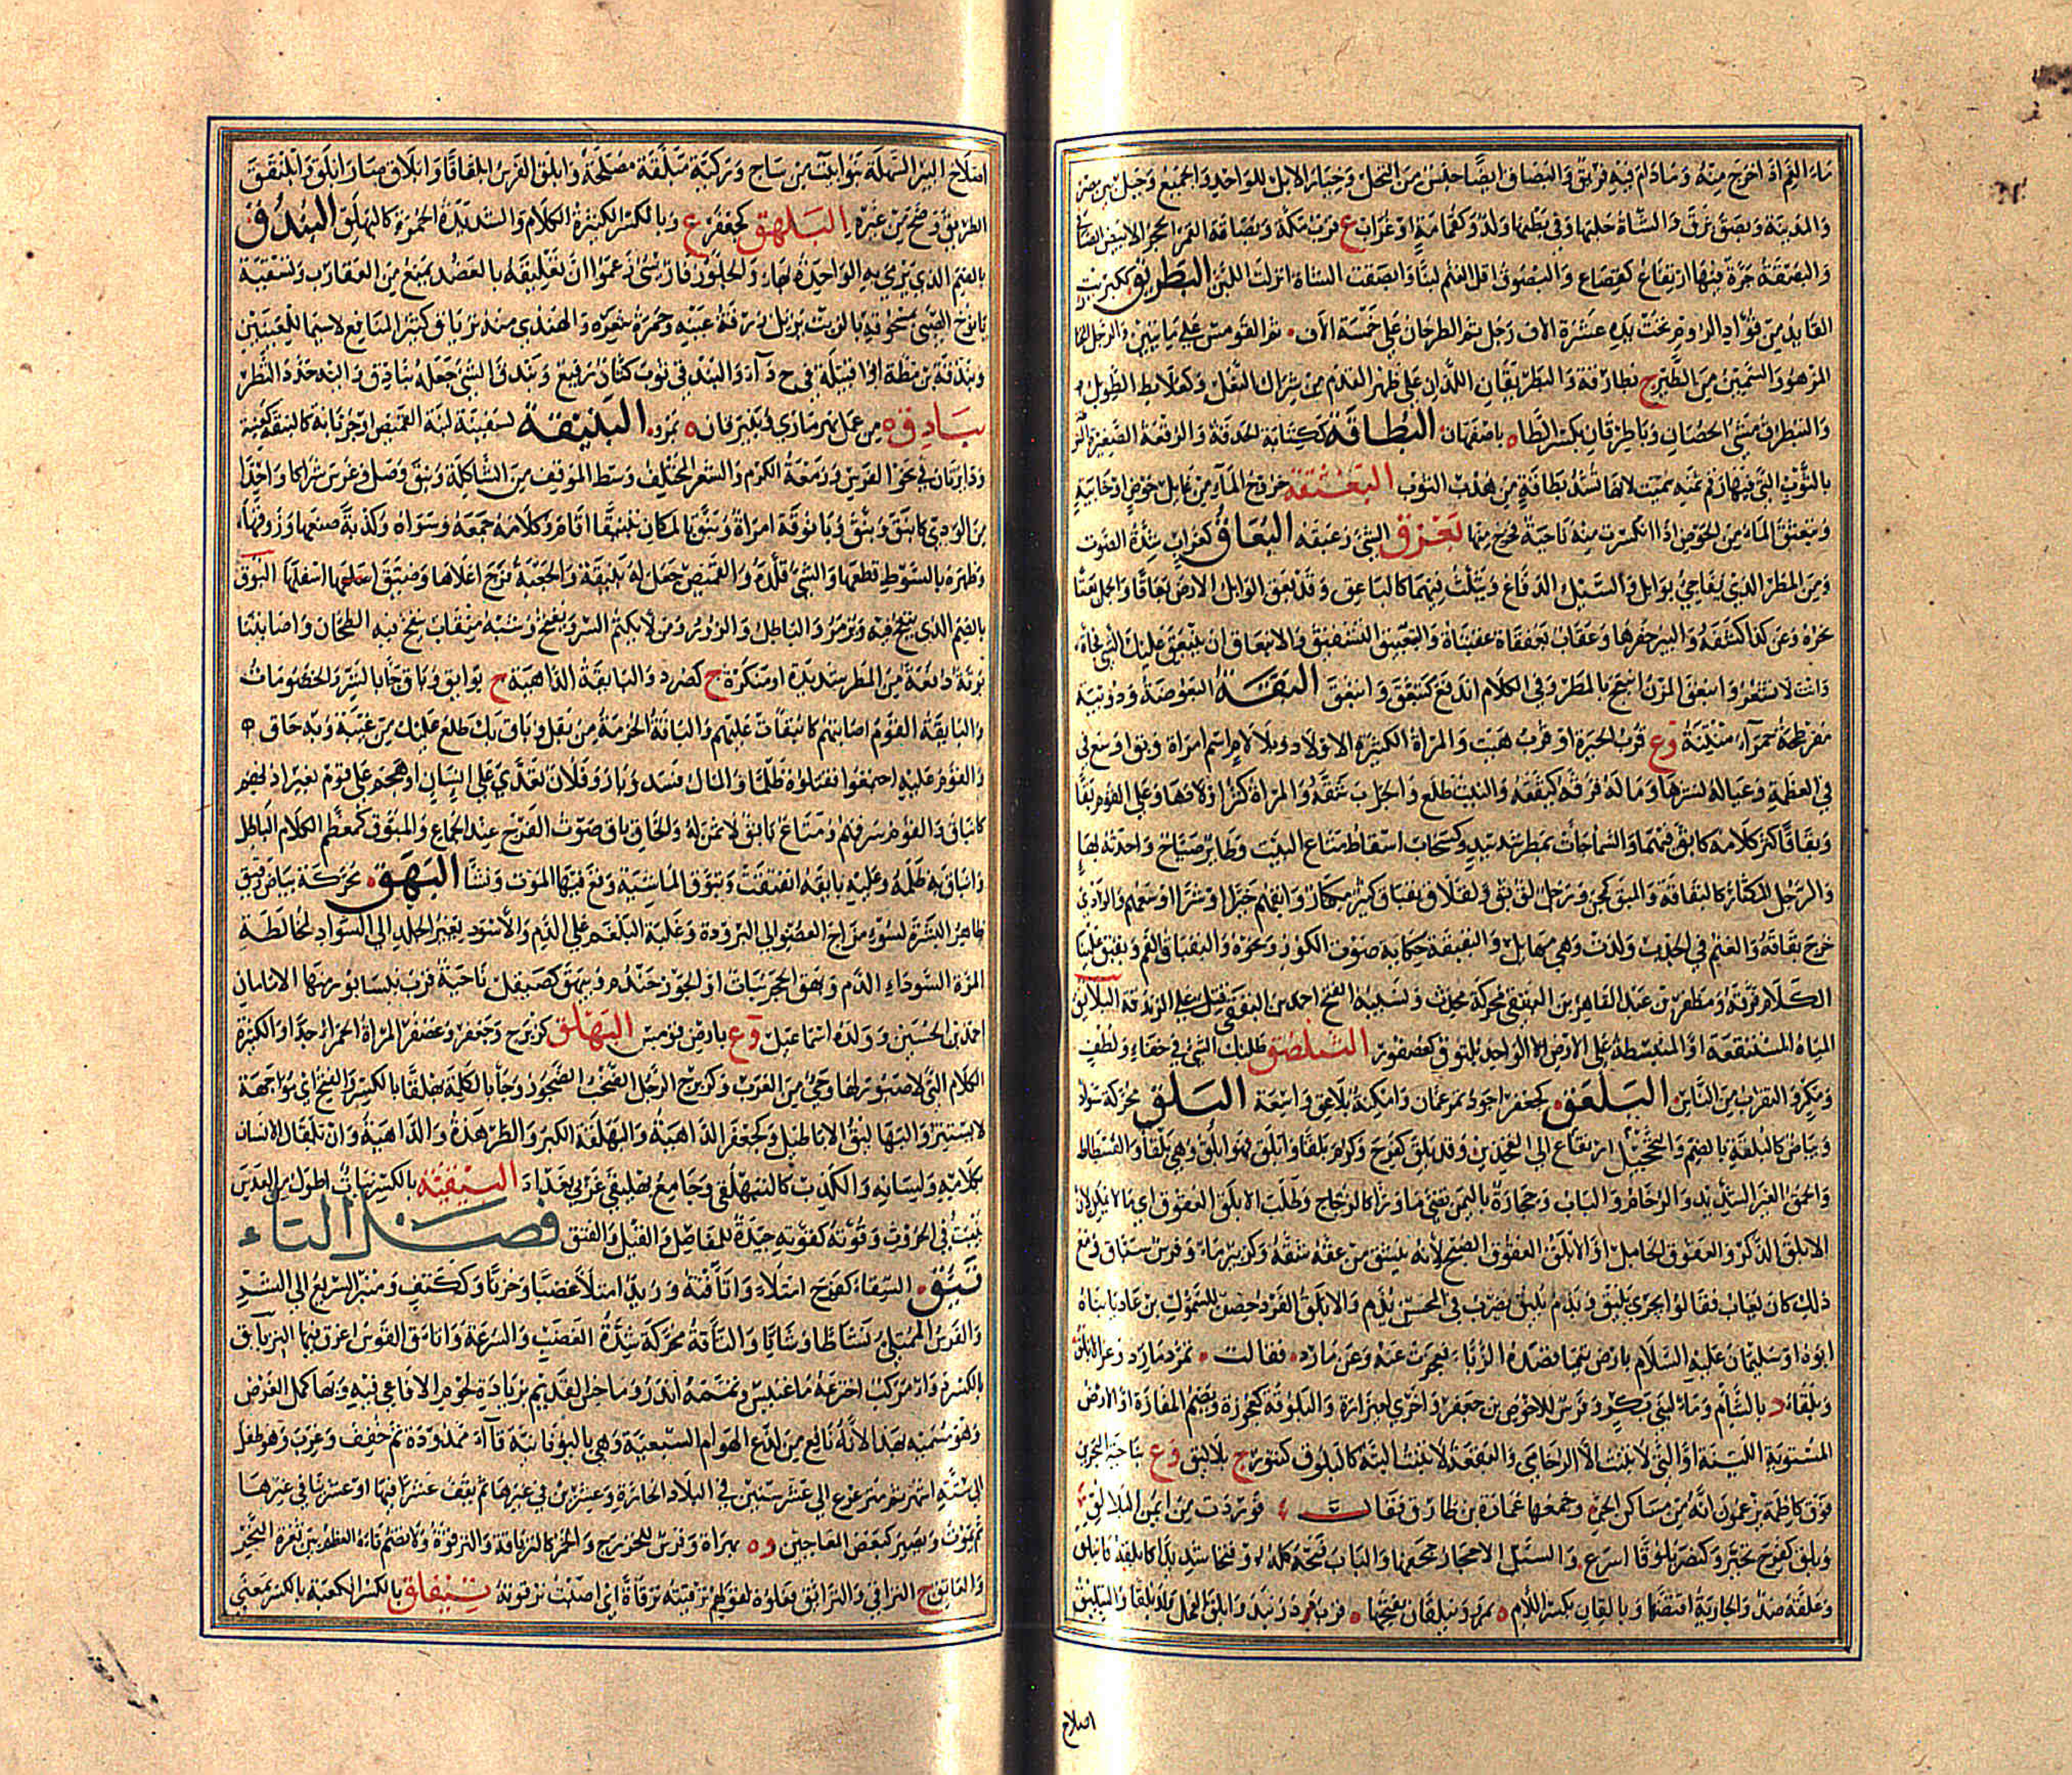 ماء الفم اذا خرج منه وما دام فيه فريق والبصاق ايضا جنس من النخل وخيار الابل للواحد والجميع وجبل بين مصر
والمدينة وبصق بزق والشاة حلبها وفي بطنها ولد وكثمامة او غراب ع قرب مكة وبصاقة القمر الحجر الابيض الصافي
والبصقة حرة فيها ارتفاع كقصاع والبصوق اقل الغنم لبنا وابصقت الشاة انزلت اللبن البطريق ككبريت
القائد من قواد الروم تحت يده عشرة الاف رجل ثم الطرخان على خمسة الاف ثم القومس على مايتين والرجل المختال
المزهو والسمين من الطير ج بطارقة والبطريقان اللذان على ظهر القدم من شراك النعل وكعلابط الطويل
والتبطرق مشي الحصان وباطرقان بكسر الطاء ه باصفهان البطاقة ككتابة الحدقة والرقعة الصغيرة المنوطة
بالثوب التي فيها رقم ثمنه سميت لانها تشد بطاقة من هدب الثوب البعثقة خروج الماء من غايل حوض او خابية
وتبعثق الماء من الحوض اذا انكسرت منه ناحية فخرج منها بعزق الشي وزعبقه البعاق كغراب شدة الصوت
ومن المطر الذي يفاجئ بوابل والسيل الدفاع ويثلث فيهما كالباعق وقد بعق الوابل الارض بعاقا والجمل بعقا
نحره وعن كذا كشفه والبير حفرها وعقاب بعنقاة عقبناة والتبعيق التشقيق والانبعاق ان ينبعق عليك الشي فجأة
وانت لا تشعر وانبعق المزن انبعج بالمطر وفي الكلام اندفع كتبعق وابتعق البقة البعوضة ودويبة
مفرطحة حمراء منتنة وع قرب الحيرة او قرب هيت والمراة الكثيرة الاولاد وبلا لام اسم امراة وبق اوسع في
في العطية وعياله نشرها وماله فرقه كبقبقه والنبت طلع والجراب شقه والمراة كثر اولادها وعلى القوم بقا
وبقاقا كثر كلامه كابق فيهما والسماء جاءت بمطر شديد وكسحاب اسقاط متاع البيت وطاير صياح واحدته بهاء
والرجل المكثار كالبقاقة والمبق كمجن ورجل لق بق ولقلاق بقباق كثير مكثار وابقهم خيرا او شرا اوسعهم والوادي
خرج بقاقه والغنم في الجدب ولدت وهي مهازيل والبقبقة حكاية صوت الكوز ونحوه والبقباق الفم وبقبق علينا
الكلام فرقه ومظفر بن عبد القاهر بن البقبقي محركة محدث ونسيبه الفتح احمد بن البققي قتل على الزندقة البلاثق
المياه المستنقعة او المنبسطة على الارض الواحد بلثوق كعصفور التبلصق طلبك الشي في خفاء ولطف
ومكر والتقرب من الناس البلعق كجعفر اجود تمر عمان وامكنة بلاعق واسعة البلق محركة سواد
وبياض كالبلقة بالضم والتحجيل ارتفاع الى الفخذين وقد بلق كفرح وكرم بلقا وابلق فهو ابلق وهي بلقا والفسطاط
والحمق الغير الشديد والرخام والباب وحجارة باليمن تضئ ما وراءها كالزجاج وطلب الابلق العقوق اي ما لا يمكن لان
الابلق الذكر والعقوق الحامل او الابلق العقوق الصبح لانه ينشق من عقه شقه وكزبير ماء وفرس سباق ومع
ذلك كان يعاب فقالوا يجري بليق ويذم بليق يضرب في المحسن يذم والابلق الفرد حصن للسموئل بن عاديا بناه
ابوه او سليمان عليه السلام بارض تيما قصدته الزباء فعجزت عنه وعن مارد فقالت تمرد مارد وعز الابلق
وبلقاء د بالشام وماء لبني بكر وفرس للاحوص بن جعفر واخرى لعيزارة والبلوقة كعجوزة ويضم المفازة او الارض
المستوية اللينة او التي لا تنبت الا الرخامى والبقعة لا تنبت البتة كالبلوق كتنور ج بلاليق وع بناحية البحرين
فوق كاظمة يزعمون انه من مساكن الجن وجمعها عمارة بن طارق فقال فوردت من ايمن البلالق
وبلق كفرح تحير وكنصر بلوقا اسرع والسيل الاحجار جحفها والباب فتحه كله او فتحا شديدا كابلقه فانبلق
وغلقه ضد والجارية افتضها وبالقان بكسر اللام ه بمرو وبيلقان بفتحها ه قرب دربند وابلق الفحل ولد بلقا والتبليق
اصلاح
اصلاح البير السهلة بتوابيت من ساج وركية مبلقة مصلحة وابلق الفرس ابلقاقا وابلاق صار ابلق وابلنقق
الطريق وضح من غيره البلهق كجعفر ع وبالكسر الكثيرة الكلام والشديدة الحمرة كالبهلق البندق
بالضم الذي يرمى به الواحدة بهاء والجلوز فارسي زعموا ان تعليقه بالعضد يمنع من العقارب وتسقية
يافوخ الصبي بسحوقه بالزيت يزيل زرقة عينيه وحمرة شعره والهندي منه ترياق كثير المنافع لاسيما للعينين
وبندقة بن مظة ابو قبيلة في ح د ا والبند في ثوب كتان رفيع وبندق الشي جعله بنادق وابنه حدد النظر
بنادق ه من عمل نهر ماري وبنيرقان ه بمرو البنيقة لسفينة لبنة القميص او جربانه كالبنقة كعنبة
ودايرتان في نحر الفرس وزمعة الكرم والشعر المختلف وسط الموقف من الشاكلة وبنق وصل وغرس شراكا واحدا
من الودي كابنق وبنق وبانوقة امراة وبنق بالمكان تبنيقا اقام وكلامه جمعه وسواه وكذبة صنعها وزوقها
وظهره بالسوط قطعها والشي قلده والقميص جعل له بنيقة والجعبة فرج اعلاها وضيق اسفلها البوق
بالضم الذي ينفخ فيه ويزمر والباطل والزور ومن لا يكتم السر ويفتح وشبه منقاب ينفخ فيه الطحان واصابتنا
بوقة دفعة من المطر شديدة او منكرة ج كصرد والبايقة الداهية ج بوايق وباق جا بالشر والخصومات
والبايقة القوم اصابتهم كانباقت عليهم والباقة الحزمة من بقل وباق بك طلع عليك من غيبة وبه حاق به
والقوم عليه اجتمعوا فقتلوه ظلما والمال فسد وبار وفلان تعدى على انسان او هجم على قوم بغير اذنهم
كانباق والقوم سرقهم ومتاع بايق لا ثمن له والخاق باق صوت الفرج عند الجماع والمبوق كمعظم الكلام الباطل
وانباق به ظلمه وعليه بايقة انفتقت وتبوق الماشية وقع فيها الموت وفشا البهق محركة بياض دقيق
ظاهر البشرة لسوء مزاج العضو الى البرودة وغلبة البلغم على الدم والاسود يغير الجلد الى السواد لمخالطة
المرة السوداء الدم وبهق الحجر نبات او لجوز جندم وبيهق كصيقل ناحية قرب نيسابور منها الامامان
احمد بن الحسين وولده اسماعيل وع بارض قومس البهلق كزبرج وجعفر وعصفر المراة الحمراء جدا او الكثيرة
الكلام التي لا صيور لها وحي من العرب وكزبرج الرجل الضخب الضجور وجا بالكلمة بهلقا بالكسر والفتح اي مواجهة
لا يستتر والبها ليق الاباطيل وكجعفر الداهية والبهلقة الكبر والطرمذة والداهية وان يلقاك الانسان
بكلامه ولسانه والكذب كالتبهلق وجامع بهليقى غربي بغداد البيقية بالكسر نبات اطول من العدس
ينبت في الحروث وقوته كقوته جيدة للمفاصل والفيل والفتق فصل التاء
تئق السقاء كفرح امتلاء واتاقته وزيد امتلا غضبا او حزنا وككتف ومنبر السريع الى الشر
والفرس الممتلئ نشاطا وشابا والتأقة محركة شدة الغضب والسرعة واتأق القوس اغرق فيها الترياق
بالكسر دواء مركب اخترعه ماغنيس وتممه اندروماخس القديم بزيادة لحوم الافاعي فيه وبها كمل الغرض
وهو مسميه بهذا لانه نافع من لدغ الهوام السبعية وهي باليونانية قاآء ممدودة ثم خفف وعرب وهو طفل
الى ستة اشهر ثم مترعرع الى عشر سنين في البلاد الحارة وعشرين في غيرها ثم يقف عشرا فيها او عشرين في غيرها
ثم يموت ويصير كبعض المعاجين وه بهراة وفرس للخزرج والخمر كالترياقة والترقوة ولا تضم تاءه العظم بين ثغرة النحر
والعاتق ج التراقي والترايق وترقوه لقولهم ترقيته ترقاة اي اصبت ترقوته تيفاق بالكسر الكعبة بالكسر بمعنى